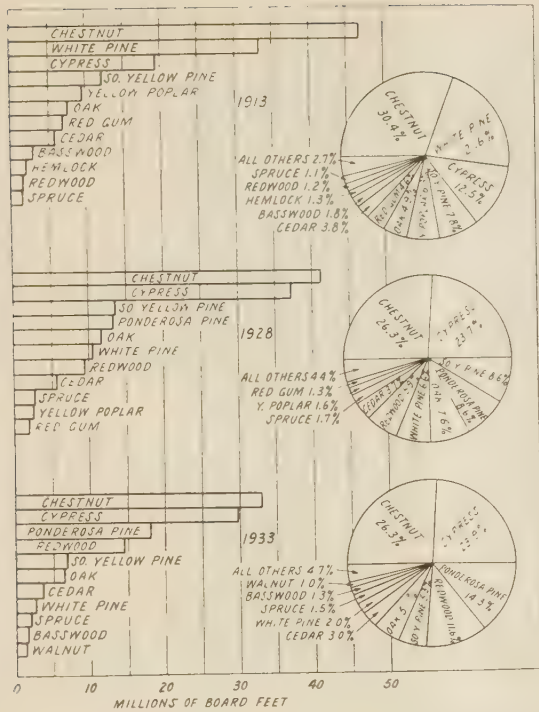 CHESTNUT
WHITE PINE
CYPRESS
SO. YELLOW PINE
YELLOW POPLAR
OAK
RED GUM
CEDAR
BASSWOOD
HEMLOCK
REDWOOD
SPRUCE
1913
CHESTNUT
30.4%
WHITE PINE
CYPRESS
12.5%
SO Y PINE 7.8%
OAK
RED GUM
ALL OTHERS 2.7%
SPRUCE 1.1%
REDWOOD 1.2%
HEMLOCK 1.3%
BASSWOOD 1.8%
CEDAR 3.8%
CHESTNUT
CYPRESS
SO YELLOW PINE
PONDEROSA PINE
OAK
WHITE PINE
REDWOOD
CEDAR
SPRUCE
YELLOW POPLAR
RED GUM
1928
CHESTNUT
26.3%
CYPRESS
23.7%
SO Y PINE 8.6%
PONDEROSA PINE
8.6%
OAK 7.6%
WHITE PINE
REDWOOD
CEDAR
ALL OTHERS 4.4%
RED GUM 1.3%
Y. POPLAR 1.6%
SPRUCE 1.7%
CHESTNUT
CYPRESS
PONDEROSA PINE
REDWOOD
SO. YELLOW PINE
OAK
CEDAR
WHITE PINE
SPRUCE
BASSWOOD
WALNUT
1933
CHESTNUT
26.3%
CYPRESS
PONDEROSA PINE
14.3%
REDWOOD 11.6%
SO Y PINE
OAK
ALL OTHERS 4.7%
WALNUT 1.0%
BASSWOOD 1.3%
SPRUCE 1.5%
WHITE PINE 2.0%
CEDAR 3.0%
0 10 20 30 40 50
MILLIONS OF BOARD FEET